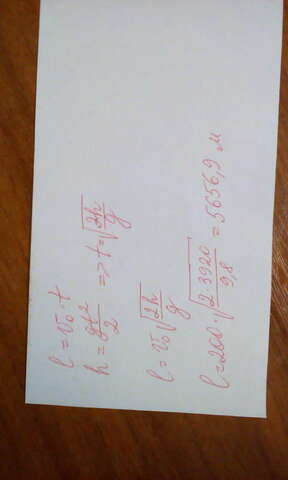 l = v₀ · t
h = gt²/2 => t = √(2h/g)
l = v₀ √(2h/g)
l = 200 · √(2·3920/9,8) = 5656,9 м